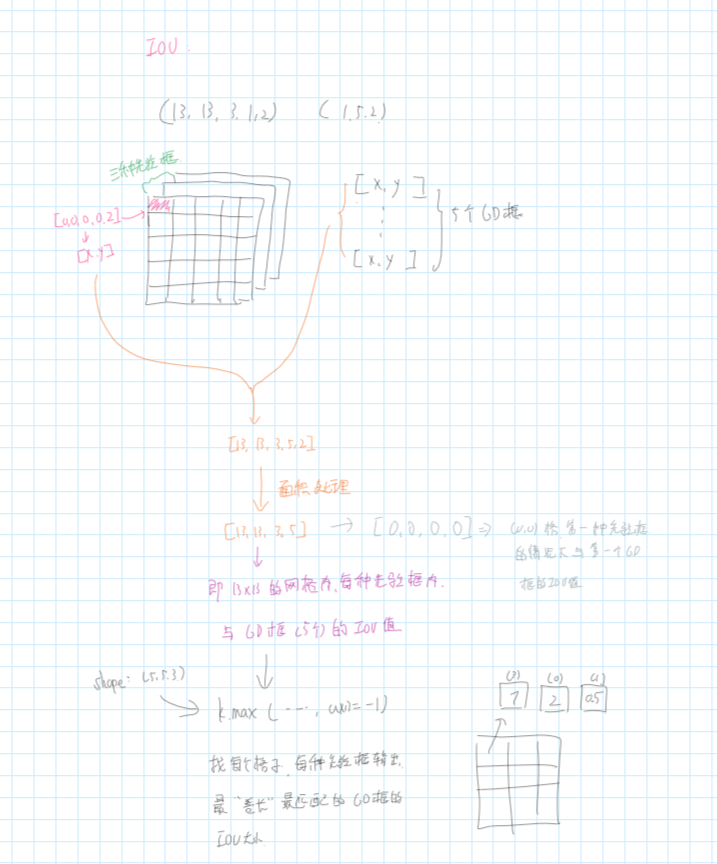 IOU
(13, 13, 3, 1, 2) (1, 5, 2)
三种先验框
[0,0,0,0,2]
[x,y]
[x, y]
[x, y]
5个GD框
[13, 13, 3, 5, 2]
面积处理
[13, 13, 3, 5] → [0, 0, 0, 0] ⇒ (0,0)格,第一种先验框
与第一个GD
框的IOU值
即13x13的网格内,每种先验框内
与GD框(5个)的IOU值
shape: (5,5,3)
k.max( ...., axis=-1)
找每个格子,每种先验框输出
最"善长"最匹配的GD框的
IOU大小
(2) (0) (1)
1 2 0.5